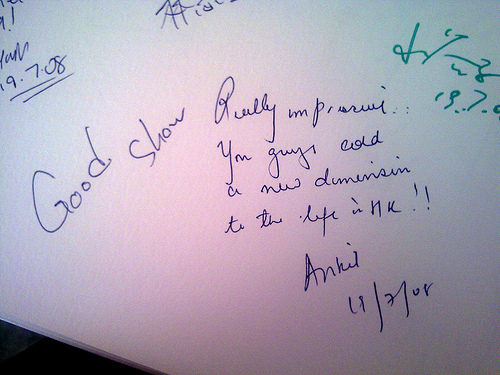 19.7.08
Good show
Really impressive..
You guys add
a new dimension
to the life in HK !!
Ankit
19/7/08
19.7.0